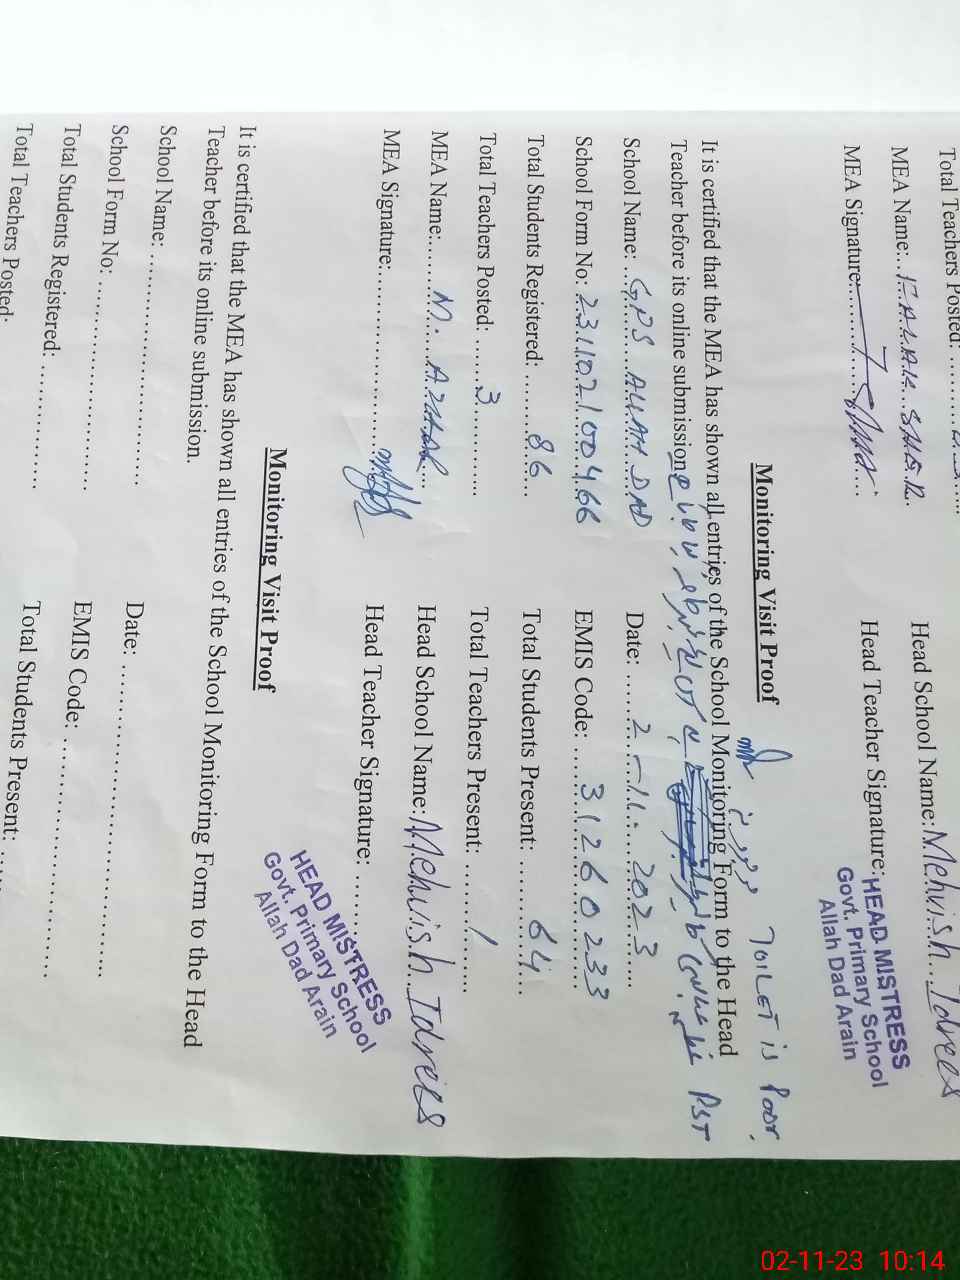 Total Teachers Posted:
MEA Name: FALAK SHER Head School Name: Mehvish Idrees
MEA Signature: Head Teacher Signature:
HEAD MISTRESS
Govt. Primary School
Allah Dad Arain
TOILET is Poor.
Monitoring Visit Proof
It is certified that the MEA has shown all entries of the School Monitoring Form to the Head
Teacher before its online submission
PST
School Name: GPS ALLAH DAD Date: 2-11-2023
School Form No: 231102100466 EMIS Code: 31260233
Total Students Registered: 86 Total Students Present: 64
Total Teachers Posted: 3 Total Teachers Present: 1
MEA Name: M. AZHAR Head School Name: Mehvish Idrees
MEA Signature: Head Teacher Signature:
HEAD MISTRESS
Govt. Primary School
Allah Dad Arain
Monitoring Visit Proof
It is certified that the MEA has shown all entries of the School Monitoring Form to the Head
Teacher before its online submission.
School Name: Date:
School Form No: EMIS Code:
Total Students Registered: Total Students Present:
Total Teachers Posted:
02-11-23 10:14